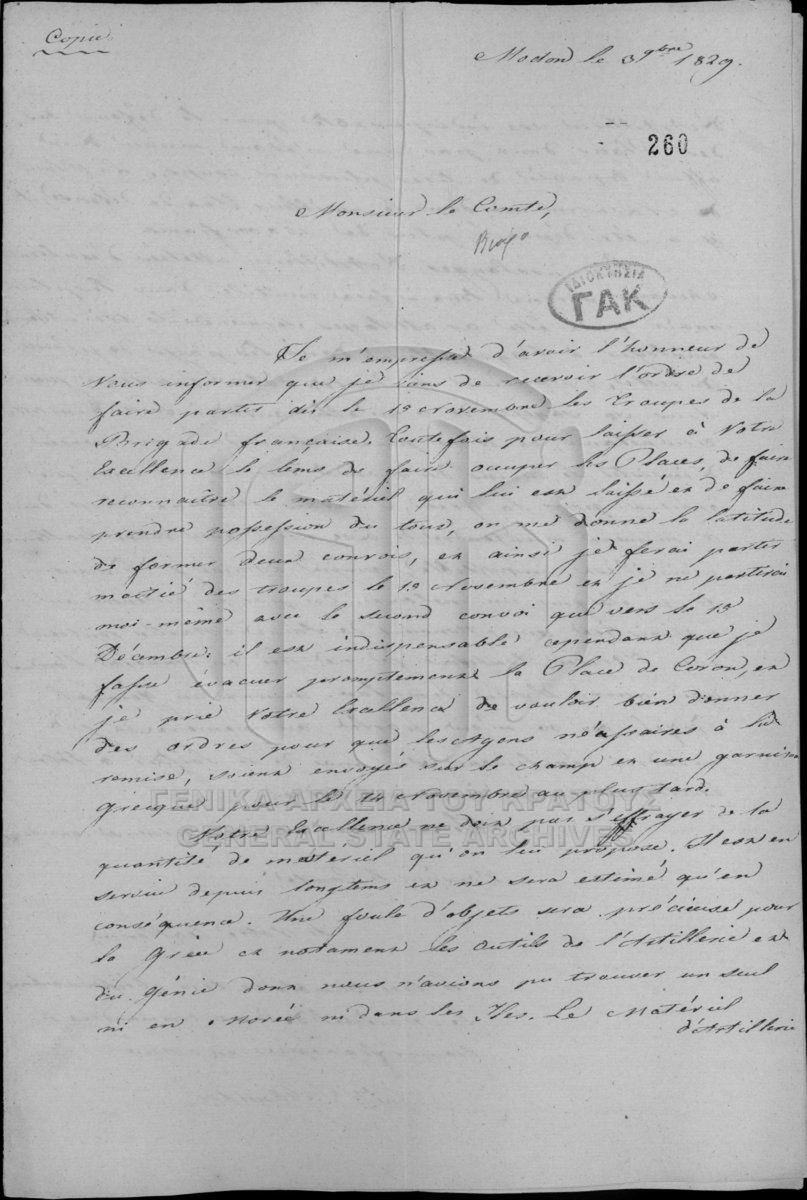 Copie
Modon le 3 9bre 1829.
260
Monsieur le Comte,
ΙΔΙΟΚΤΗΣΙΑ
ΓΑΚ
Je m'empresse d'avoir l'honneur de
Vous informer que je viens de recevoir l'ordre de
faire partir dès le 15 Novembre les Troupes de la
Brigade française. Toutefois pour laisser à Votre
Excellence le tems de faire occuper les Places, de faire
reconnaître le matériel qui lui est laissé et de faire
prendre possession du tout, on me donne la latitude
de former deux convois, et ainsi je ferai partir
moitié des troupes le 15 Novembre et je ne partirai
moi-même avec le second convoi que vers le 15
Décembre; il est indispensable cependant que je
fasse évacuer promptement la Place de Coron, et
je prie Votre Excellence de vouloir bien donner
des ordres pour que les Agens nécessaires à la
remise, soient envoyés sur le champ et une garnison
grecque pour le Novembre au plus tard.
ΓΕΝΙΚΑ ΑΡΧΕΙΑ ΤΟΥ ΚΡΑΤΟΥΣ
GENERAL STATE ARCHIVES
Votre Excellence ne doit pas s'effrayer de la
quantité de matériel qu'on lui propose. Il est en
service depuis longtems et ne sera estimé qu'en
conséquence. Une foule d'objets sera précieuse pour
la Grèce et notament les outils de l'Artillerie et
du génie dont nous n'avions pu trouver un seul
ni en Morée ni dans les Iles. Le Matériel
d'Artillerie